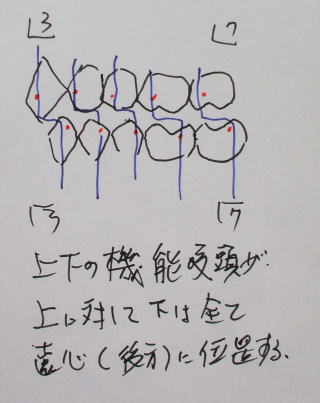 3 7
3 7
上下の機能咬頭が
上に対して下は全て
遠心(後方)に位置する.